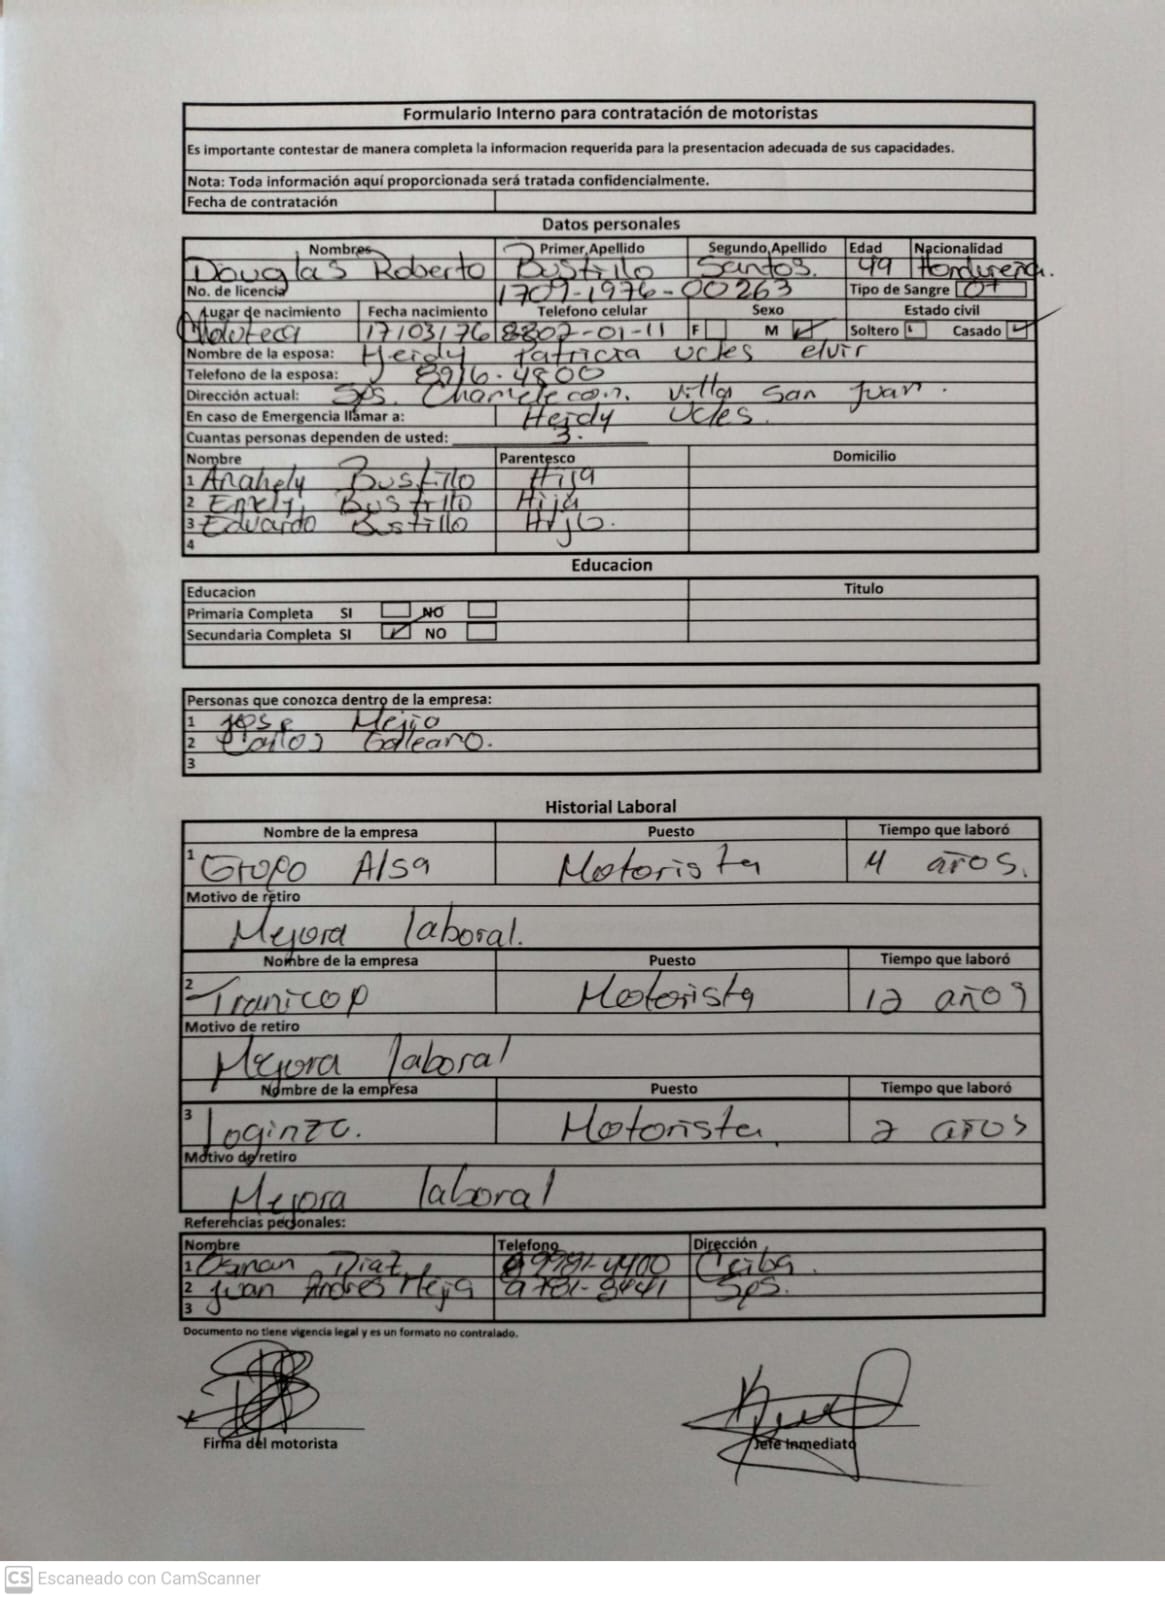 Formulario Interno para contratación de motoristas
Es importante contestar de manera completa la informacion requerida para la presentacion adecuada de sus capacidades.
Nota: Toda información aquí proporcionada será tratada confidencialmente.
Fecha de contratación
Datos personales
Nombres Primer Apellido Segundo Apellido Edad Nacionalidad
Douglas Roberto Bustillo Santos. 49 Hondureña.
No. de licencia 1709-1976-00263 Tipo de Sangre O+
Lugar de nacimiento Fecha nacimiento Telefono celular Sexo Estado civil
17/03/76 8802-01-11 F M Soltero Casado
Nombre de la esposa: Heidy Patricia Ucles elvir
Telefono de la esposa: 8916-4800
Dirección actual: Sps. Chamelecon. villa san Juan.
En caso de Emergencia llamar a: Heidy Ucles.
Cuantas personas dependen de usted: 3.
Nombre Parentesco Domicilio
1 Anahely Bustillo Hija
2 Bustillo Hija
3 Eduardo Bustillo Hijo.
4
Educacion
Educacion Titulo
Primaria Completa SI NO
Secundaria Completa SI NO
Personas que conozca dentro de la empresa:
1 Jose Mejia
2 Carlos Galeano.
3
Historial Laboral
Nombre de la empresa Puesto Tiempo que laboró
1 Grupo Alsa Motorista 4 años.
Motivo de retiro
Mejora laboral.
Nombre de la empresa Puesto Tiempo que laboró
2 Tranicop Motorista 12 años
Motivo de retiro
Mejora laboral
Nombre de la empresa Puesto Tiempo que laboró
3 Motorista. 2 años
Motivo de retiro
Mejora laboral
Referencias personales:
Nombre Telefono Dirección
1 Osman Diaz Ceiba.
2 Juan Andres Mejia Sps.
3
Documento no tiene vigencia legal y es un formato no contralado.
Firma del motorista Jefe Inmediato
CS Escaneado con CamScanner